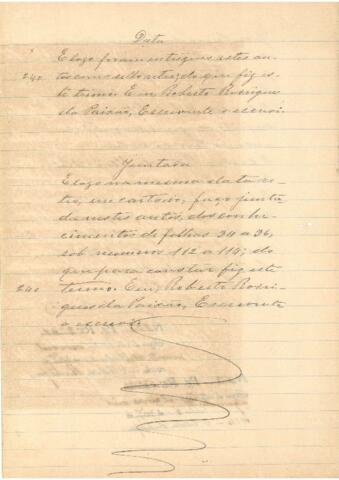 Data
E logo foram entregues estes au-
tos com o sello do que fiz es-
240
te termo. Eu, Roberto Rodrigues
da Paixão, Escrevente o escrevi.
Juntada
E logo na mesma data re-
tro, em cartorio, faço junta
da nestes autos, dos conhe-
cimentos de folhas 24 a 26,
sob numeros 112 a 114; do
que para constar fiz este
240
termo. Eu, Roberto Rodri-
gues da Paixão, Escrevente
o escrevi.